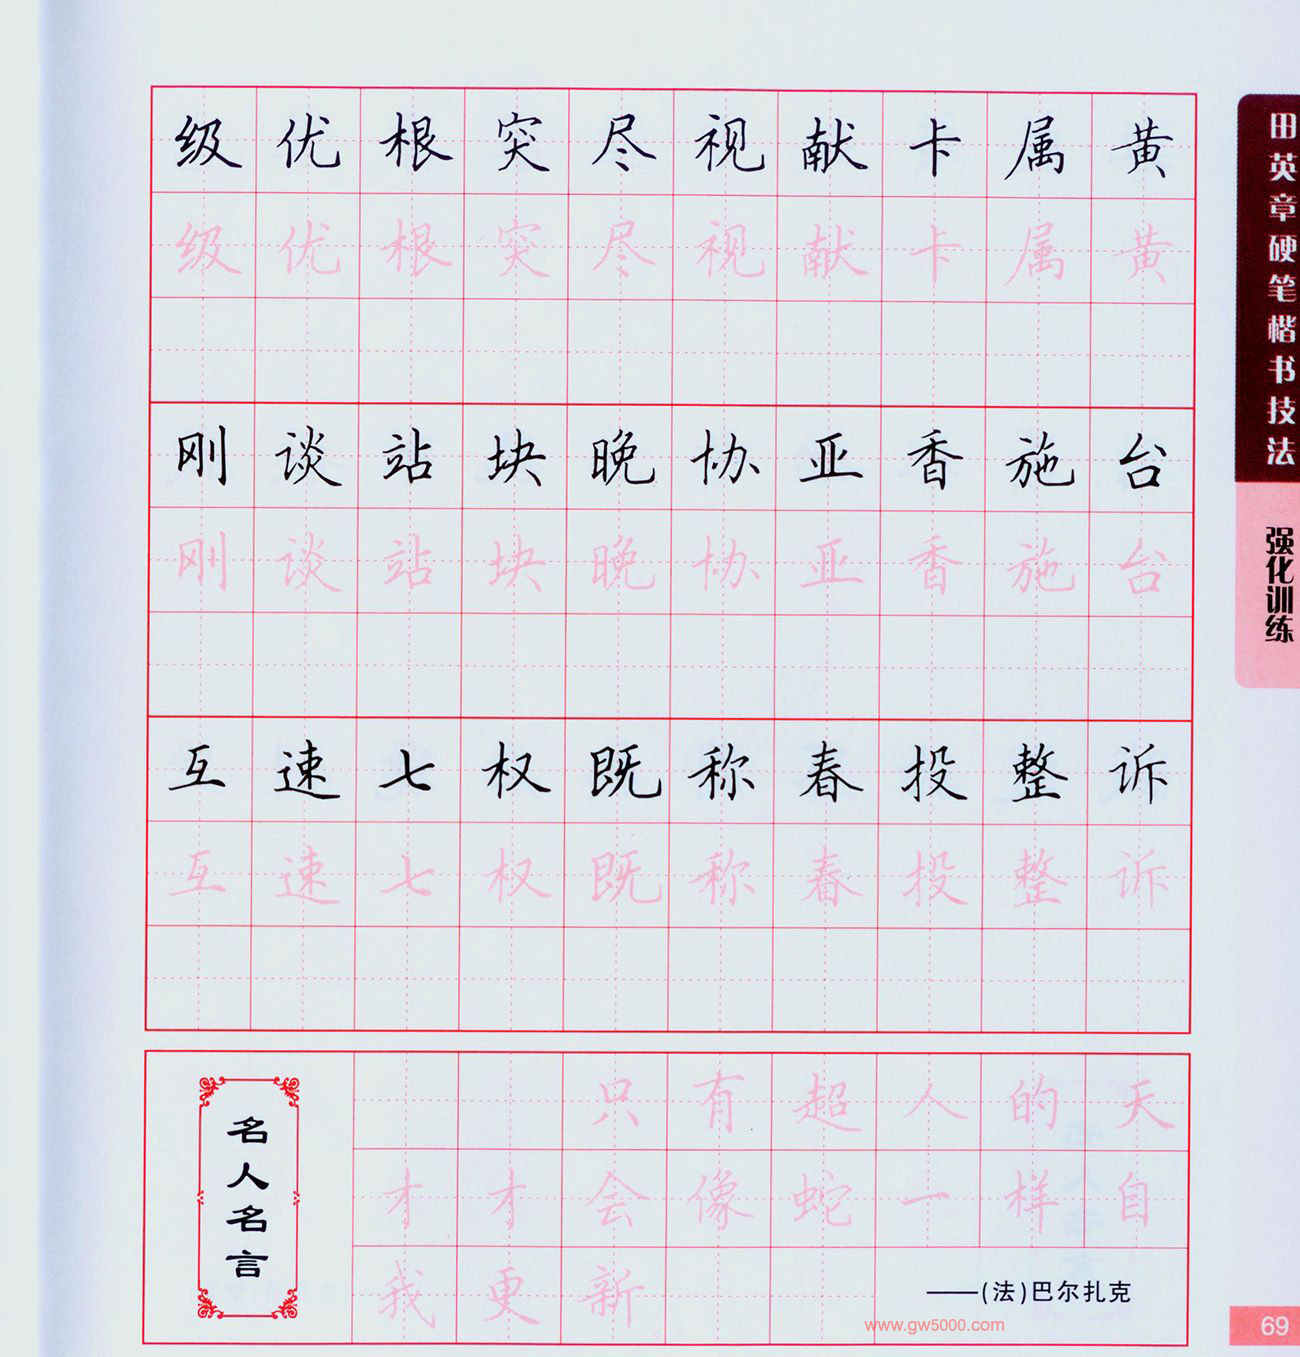 级优根突尽视献卡属黄
级优根突尽视献卡属黄
刚谈站块晚协亚香施台
刚谈站块晚协亚香施台
互速七权既称春投整诉
互速七权既称春投整诉
名人名言
只有超人的天
才才会像蛇一样自
我更新
——(法)巴尔扎克
www.gw5000.com
田英章硬笔楷书技法
强化训练
69